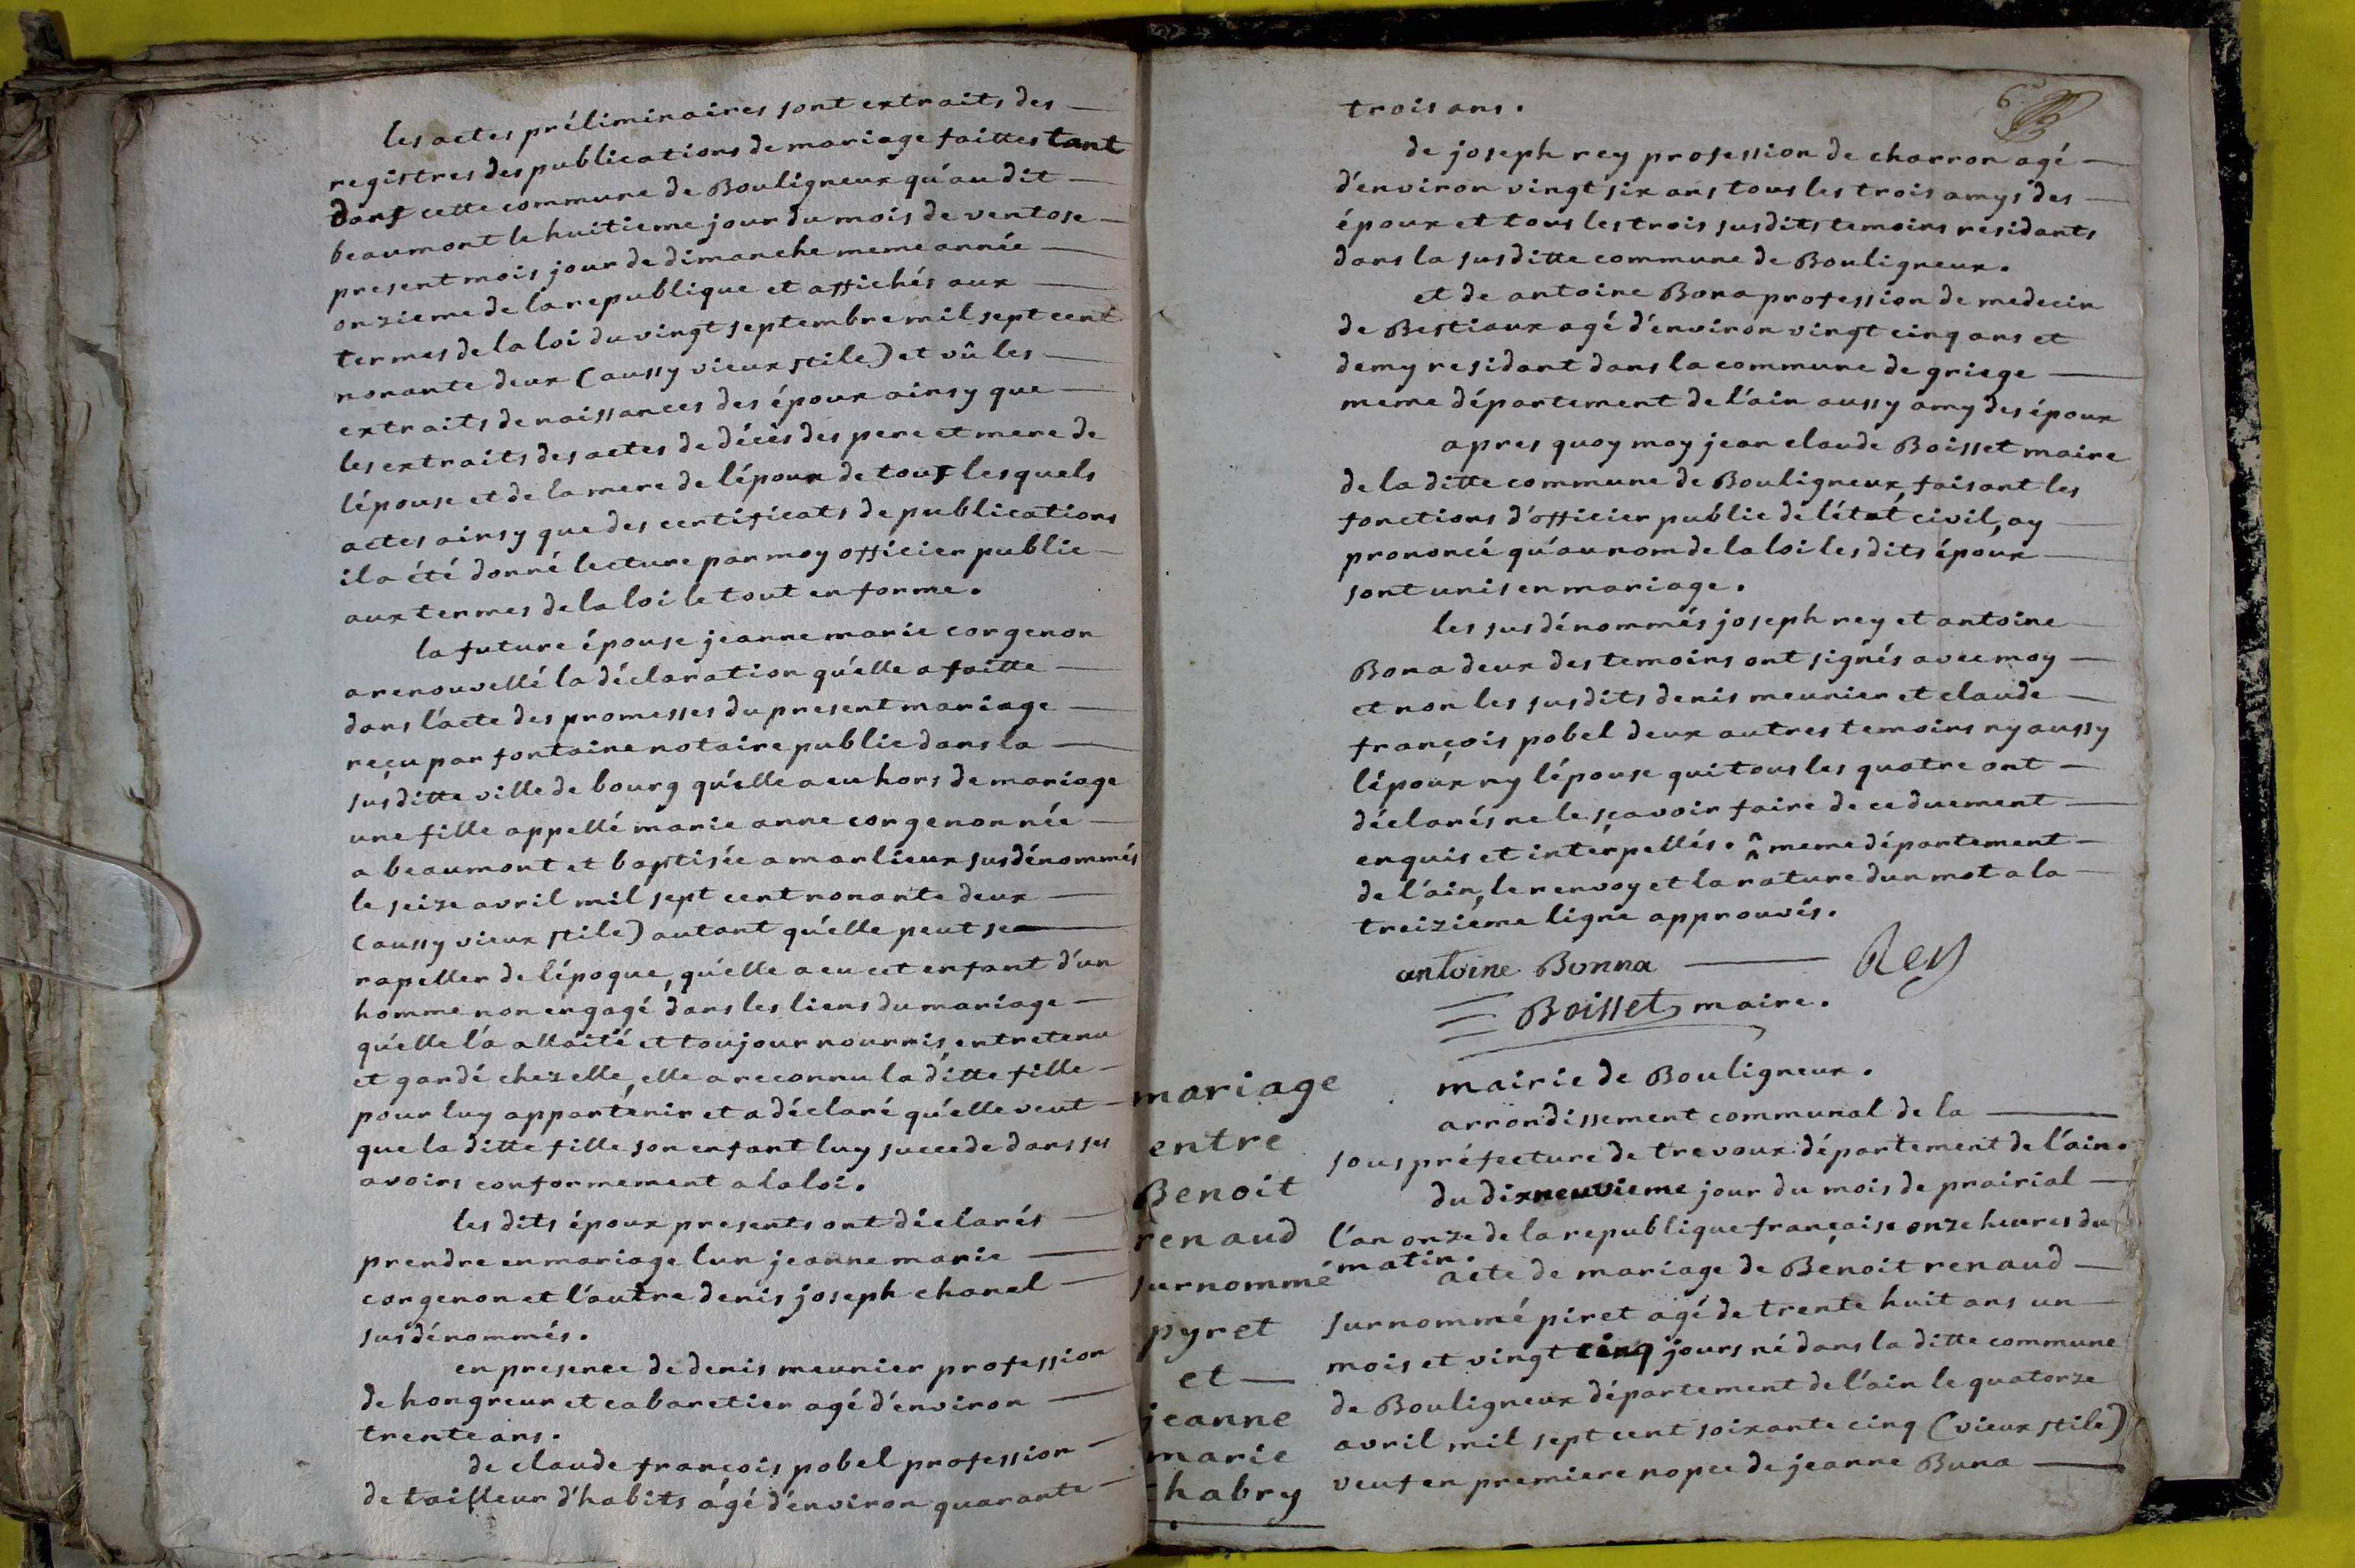 les actes préliminaires sont extraits des
registres des publications de mariage faittes tant
dans cette commune de Bouligneux qu'au dit
beaumont le huitieme jour du mois de ventose
present mois, jour de dimanche meme année
onzieme de la republique et affichés aux
termes de la loi du vingt septembre mil sept cent
nonante deux (aussy vieux stile) et vû les
extraits de naissances des époux ainsy que
les extraits des actes de décès des pere et mere de
l'épouse et de la mere de l'époux de tous lesquels
actes ainsy que des certificats de publications
il a été donné lecture par moy officier public
aux termes de la loi le tout en forme.
la future épouse jeanne marie corgenon
a renouvellé la déclaration qu'elle a faitte
dans l'acte des promesses du present mariage
reçu par fontaine notaire public dans la
susditte ville de bourg qu'elle a eu hors de mariage
une fille appellé marie anne corgenon née
a beaumont et baptisée a marlieux susdénommés
le seize avril mil sept cent nonante deux
(aussy vieux stile) autant qu'elle peut se
rapeller de l'époque, qu'elle a eu cet enfant d'un
homme non engagé dans les liens du mariage
qu'elle l'a allaité et toujour nourris, entretenu
et gardé chez elle, elle a reconnu la ditte fille
pour luy appartenir et a déclaré qu'elle veut
que la ditte fille son enfant luy succede dans ses
avoirs conformement a la loi.
les dits époux presents ont déclarés
prendre en mariage l'un jeanne marie
corgenon et l'autre denis joseph chanel
susdénommés.
en presence de denis meunier profession
de hongreur et cabaretier agé d'environ
trente ans.
de claude françois pobel profession
de tailleur d'habits agé d'environ quarante
6
trois ans.
de joseph rey profession de charron agé
d'environ vingt six ans tous les trois amys des
époux et tous les trois susdits temoins residants
dans la susditte commune de Bouligneux.
et de antoine Bona profession de medecin
de Bestiaux agé d'environ vingt cinq ans et
demy residant dans la commune de griege
meme département de l'ain aussy amy des époux
apres quoy moy jean claude Boisset maire
de la ditte commune de Bouligneux, faisant les
fonctions d'officier public de l'état civil, ay
prononcé qu'au nom de la loi les dits époux
sont unis en mariage.
les susdénommés joseph rey et antoine
Bona deux des temoins ont signés avec moy
et non les susdits denis meunier et claude
françois pobel deux autres temoins ny aussy
l'époux ny l'épouse qui tous les quatre ont
déclarés ne le sçavoir faire de ce duement
enquis et interpellés. meme département
de l'ain, le renvoy et la rature d'un mot a la
treizième ligne approuvés.
antoine Bonna Rey
Boisset maire.
mairie de Bouligneux.
arrondissement communal de la
sous préfecture de trevoux département de l'ain.
du dixneuvieme jour du mois de prairial
l'an onze de la republique française onze heures du
matin.
mariage
entre
Benoit
renaud
surnommé
pyret
et
jeanne
marie
chabry
acte de mariage de Benoit renaud
surnommé piret agé de trente huit ans un
mois et vingt cinq jours né dans la ditte commune
de Bouligneux département de l'ain le quatorze
avril mil sept cent soixante cinq (vieux stile)
veuf en premiere nopce de jeanne Buna